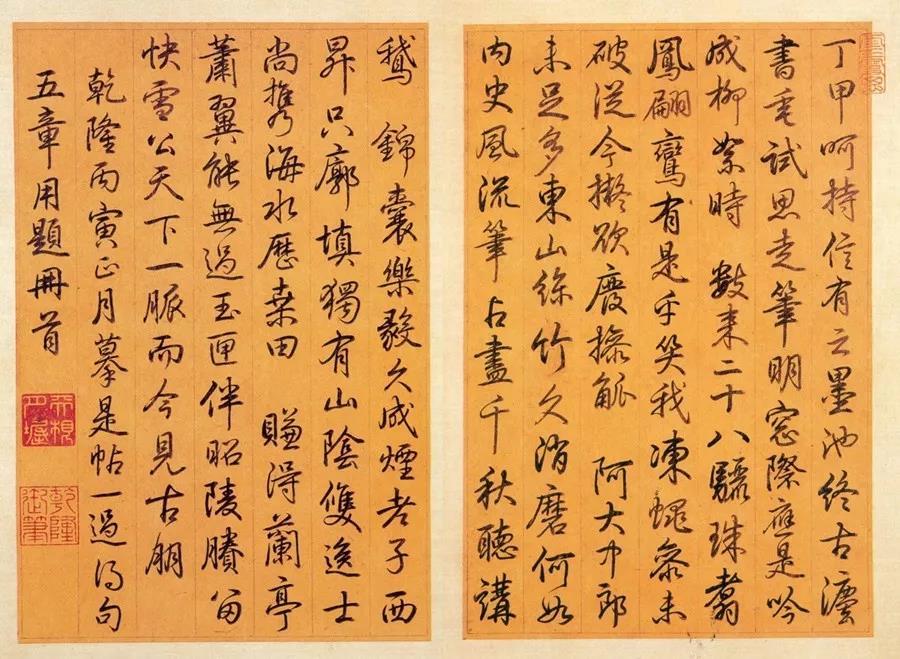 丁甲呵持信有之墨池終古瀋
書垂試思走筆明窗際應是吟
成柳絮時 數來二十八驪珠翥
鳳翩鸞有是乎笑我凍蠅參未
破從今擬欲廢操觚 阿大中郎
未足多東山絲竹久消磨何如
內史風流筆占盡千秋聽講
鵝 錦囊樂毅久成煙老子西
昇只廓填獨有山陰雙逸士
尚攜海水歷桑田 賺得蘭亭
蕭翼能無過玉匣伴昭陵賸留
快雪公天下一脈而今見古朋
乾隆丙寅正月摹是帖一過得句
五章用題冊首
乾隆御筆